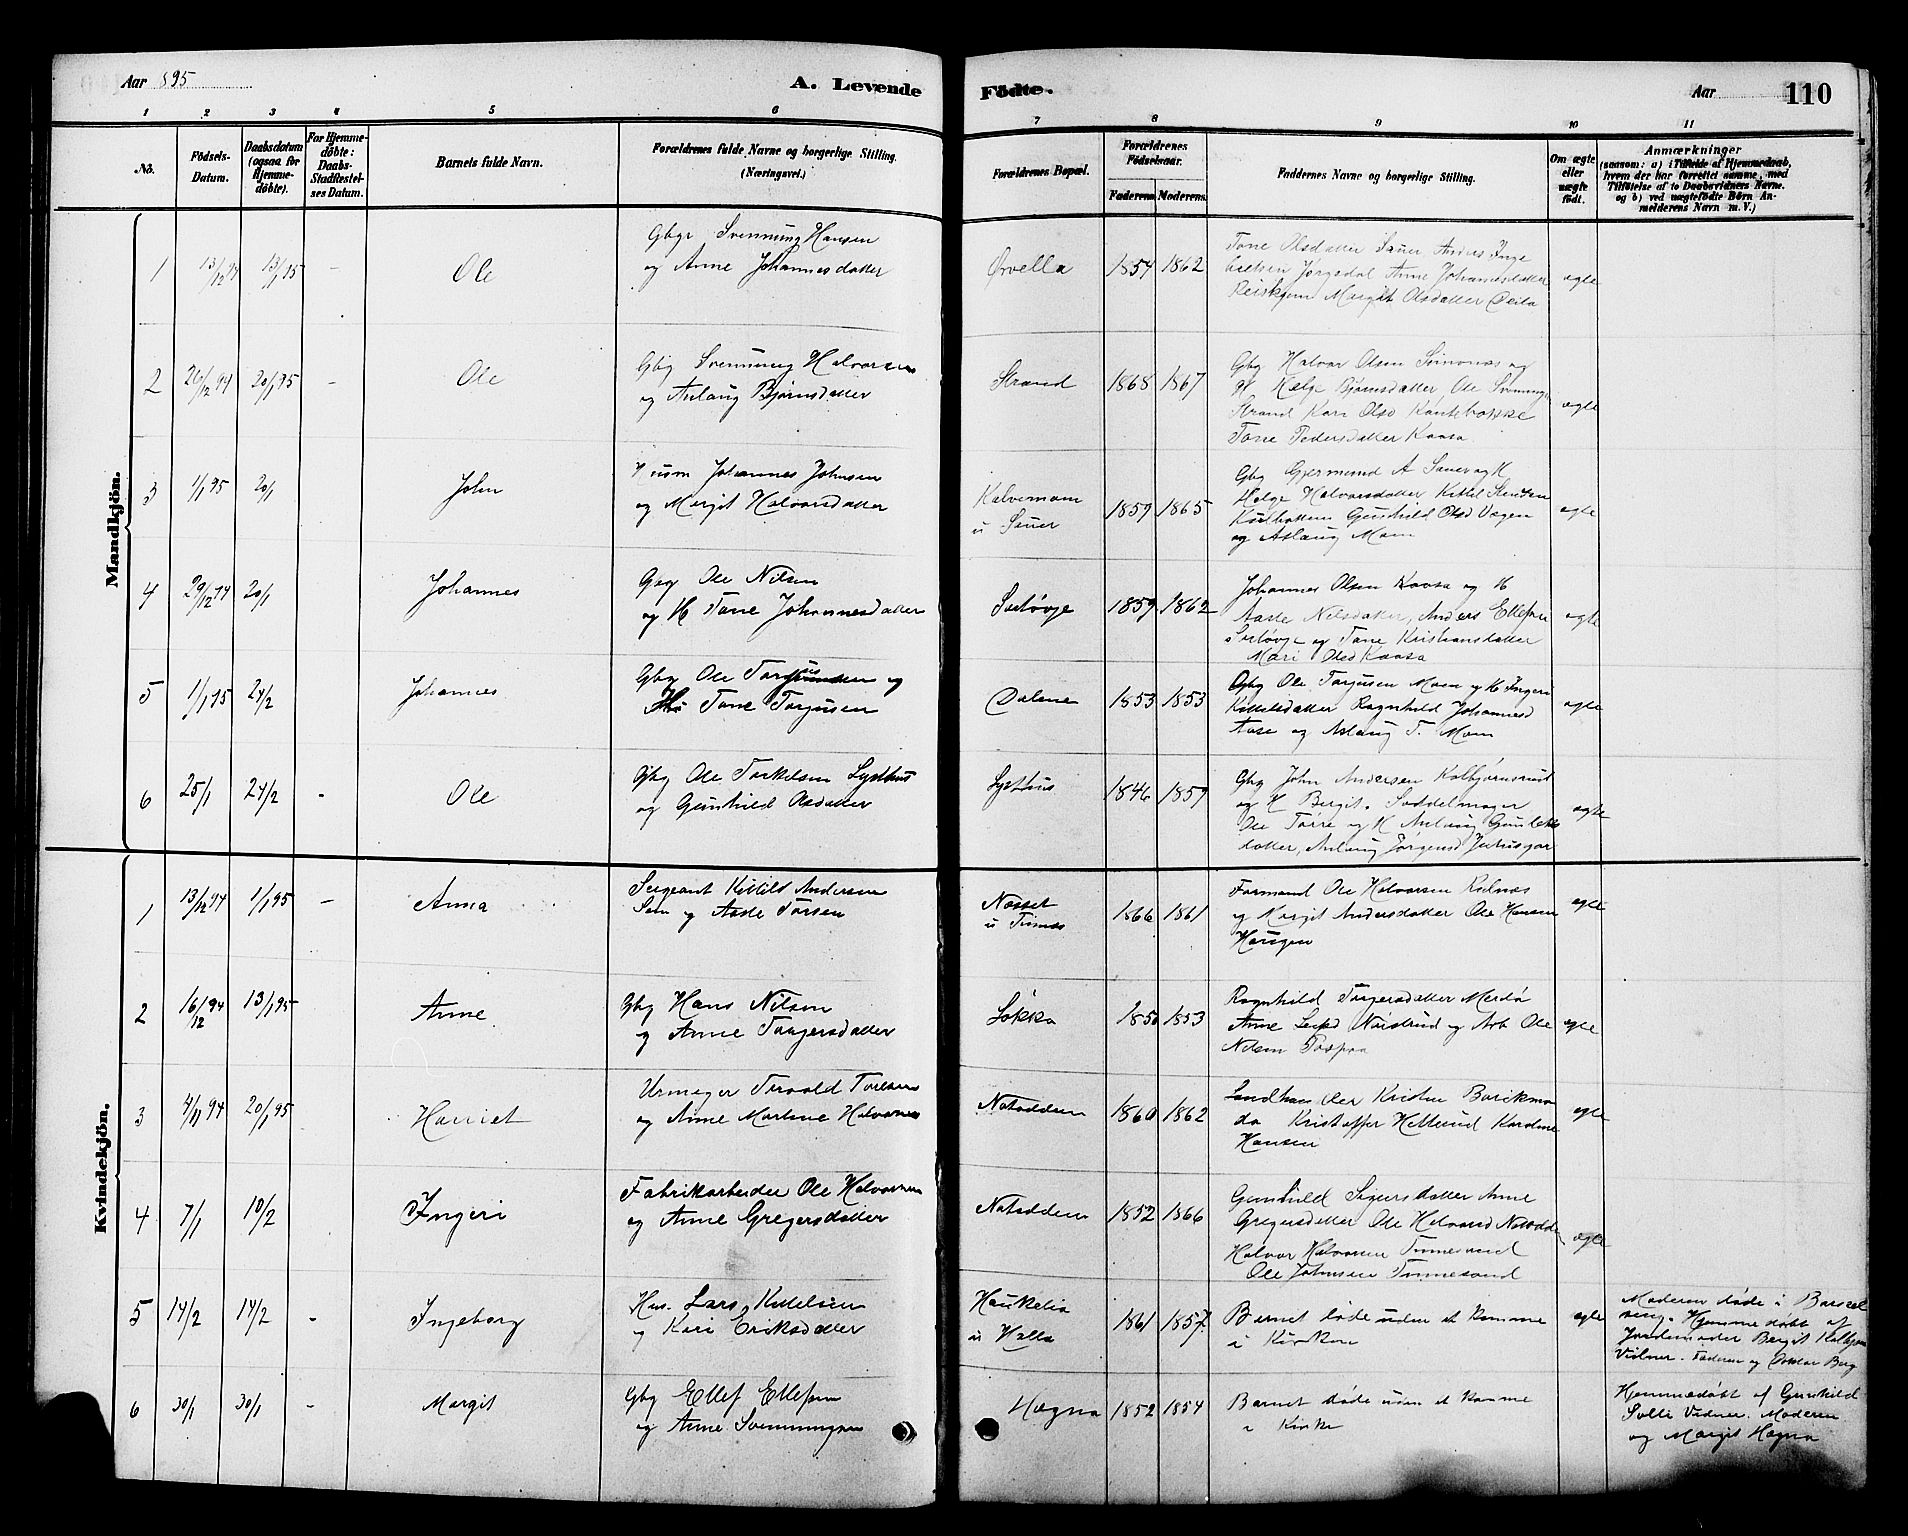 Aar 895
A. Levende
Födte.
Aar
110
1 2 3 4 5 6 7 8 9 10 11
No.
Födsels-
Datum.
Daabsdatum
(ogsaa for
Hjemme-
döbte).
For Hjemme-
döbte:
Daabs-
Stadfæstel-
ses Datum.
Barnets fulde Navn.
Forældrenes fulde Navne og borgerlige Stilling.
(Næringsvei.)
Forældrenes Bopæl.
Forældrenes
Födselsaar.
Faderens Moderens
Faddernes Navne og borgerlige Stilling.
Om ægte
eller
uægte
født.
Anmærkninger
(saasom: a) i Tilfælde af Hjemmedaab,
hvem der har forrettet samme, med
Tilføielse af to Daabsvidners Navne.
og b) ved uægtefødte Börn An-
melderens Navn m. V.)
Mandkjön.
1 13/12 94 13/1 95 - Ole
Gbgr Svennung Hansen
og Anne Johannesdatter
Ørvella 1854 1862
Tone Olsdatter Sauer Anders Inge
bretsen Jørgedal Anne Johannesdatter
Reiskjem Margit Olsdatter
ægte
2 26/12 94 20/1 95 - Ole
Gbg Svennung Halvorsen
og Aslaug Bjørnsdatter
Strand 1868 1867
Gbg Halvor Olsen Semonæs og
H Helge Bjørnsdatter, Ole Svennungs
Strand Kari Olsd
Tone Pedersdatter Kaasa
ægte
3 1/1 95 20/1 John
Husm Johannes Johnsen
og Margit Halvorsdatter
Kalvemoen
u Sauer
1859 1865
Gbg Gjermund A Sauer og H
Helge Halvorsdatter Kittil
Gunhild Olsd
og Aslaug Moen
ægte
4 29/12 94 20/1 Johannes
Gbg Ole Nilsen
og H Tone Johannesdatter
1859 1862
Johannes Olsen Kaasa og H
Aaste Nilsdatter, Anders Ellefsen
og Tone Kristiansdatter
Mari Olsd Kaasa
ægte
5 1/1 95 24/2 Johannes
Gbg Ole Torjusen og
Tone Torjusen
Dalene 1853 1853
Gbg Ole Torjusen Moen og H Ingeri
Kittilsdatter Ragnhild Johannesd
Aase og Aslaug T. Moen
ægte
6 25/1 24/2 - Ole
Gbg Ole Torkelsen Lysthus
og Gunhild Olsdatter
Lysthus 1846 1859
Gbg John Andersen Kolbjørnsrud
og H Bergit. Saddelmager
Ole Torre og H Aslaug Gunleiks
datter, Aslaug Jørgensd
ægte
Kvindekjön.
1 13/12 94 1/1 95 - Anna
Sergeant Kittil Andersen
Sem og Aase Torsen
1866 1861
Formand Ole Halvorsen
og Margit Andersdatter Ole Hansen
Haugen
ægte
2 16/12 94 13/1 95 Anne
Gbg Hans Nilsen
og Anne Torgersdatter
Løkka 1850 1853
Ragnhild Torgersdatter
Anne og Arb Ole
Nilsen
ægte
3 4/11 94 20/1 95 Harriet
Urmager Torvald Toresen
og Anne Martine Halvorsen
Notodden 1860 1862
Landhandler Kristen
do Kristoffer Karoline
Hansen
ægte
4 7/1 10/2 Ingeri
Fabrikarbeider Ole Halvorsen
og Anne Gregersdatter
Notodden 1852 1866
Gunhild Sigursdatter Anne
Gregersdatter Ole Halvorsd Notodden
Halvor Halvorsen Tinnesand
Ole Johnsen Tinnesand
ægte
5 14/2 14/2 - Ingeborg
Hus. Lars Kittelsen
og Kari Eriksdatter
Haukelia
u Hella
1861 1857
Barnet døde uden at komme
i Kirken
ægte
Moderen døde i Barsel
seng. Hjemmedøbt af
Jordemoder Bergit
Vidner. Faderen og Doktor Berg
6 30/1 30/1 - Margit
Gbg Ellef Ellefsen
og Anne Svennungsen
Hægna 1852 1854
Barnet døde uden at komme
i Kirke
Hjemmedøbt af Gunhild
Vidner. Moderen
og Margit Hægna